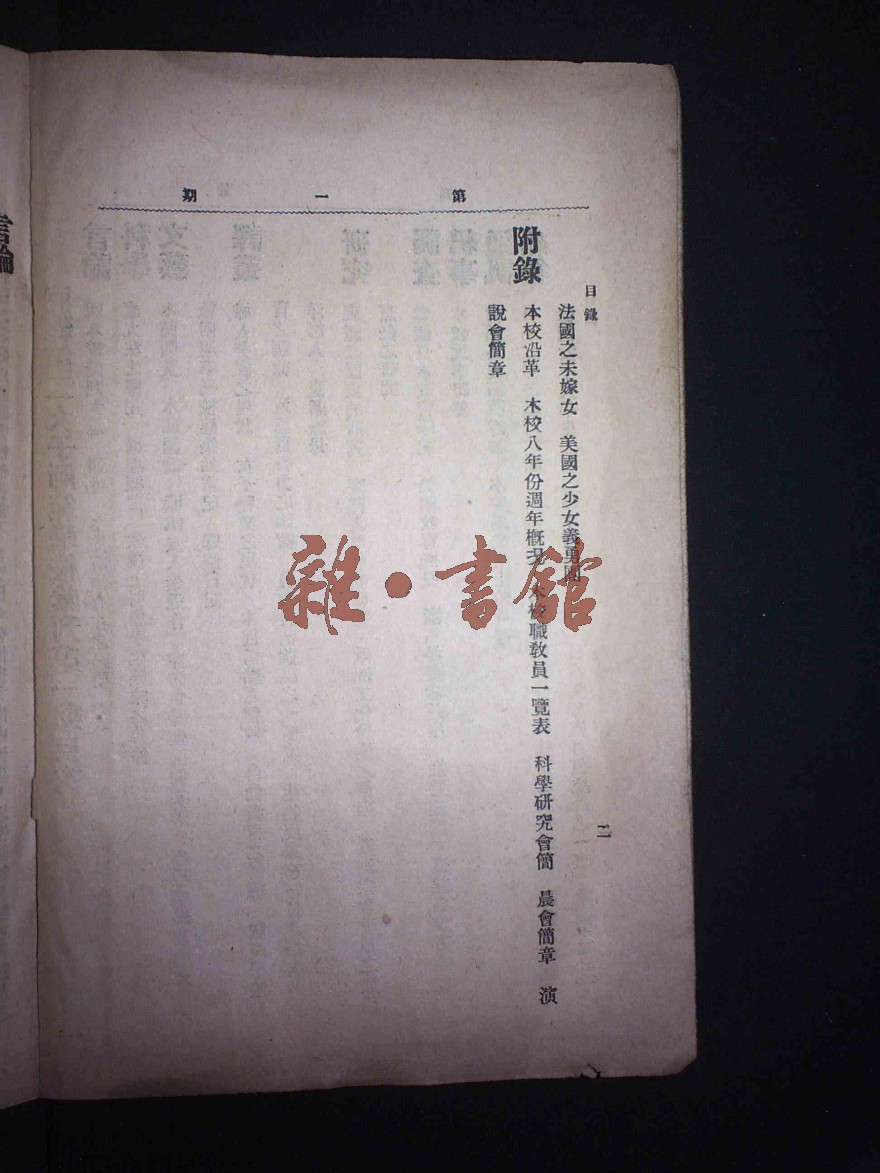 第一期
目錄
二
法國之未嫁女　美國之少女義勇團
附錄
本校沿革　本校八年份週年概况　本校職敎員一覽表　科學研究會簡　晨會簡章　演
說會簡章
雜·書館
言論